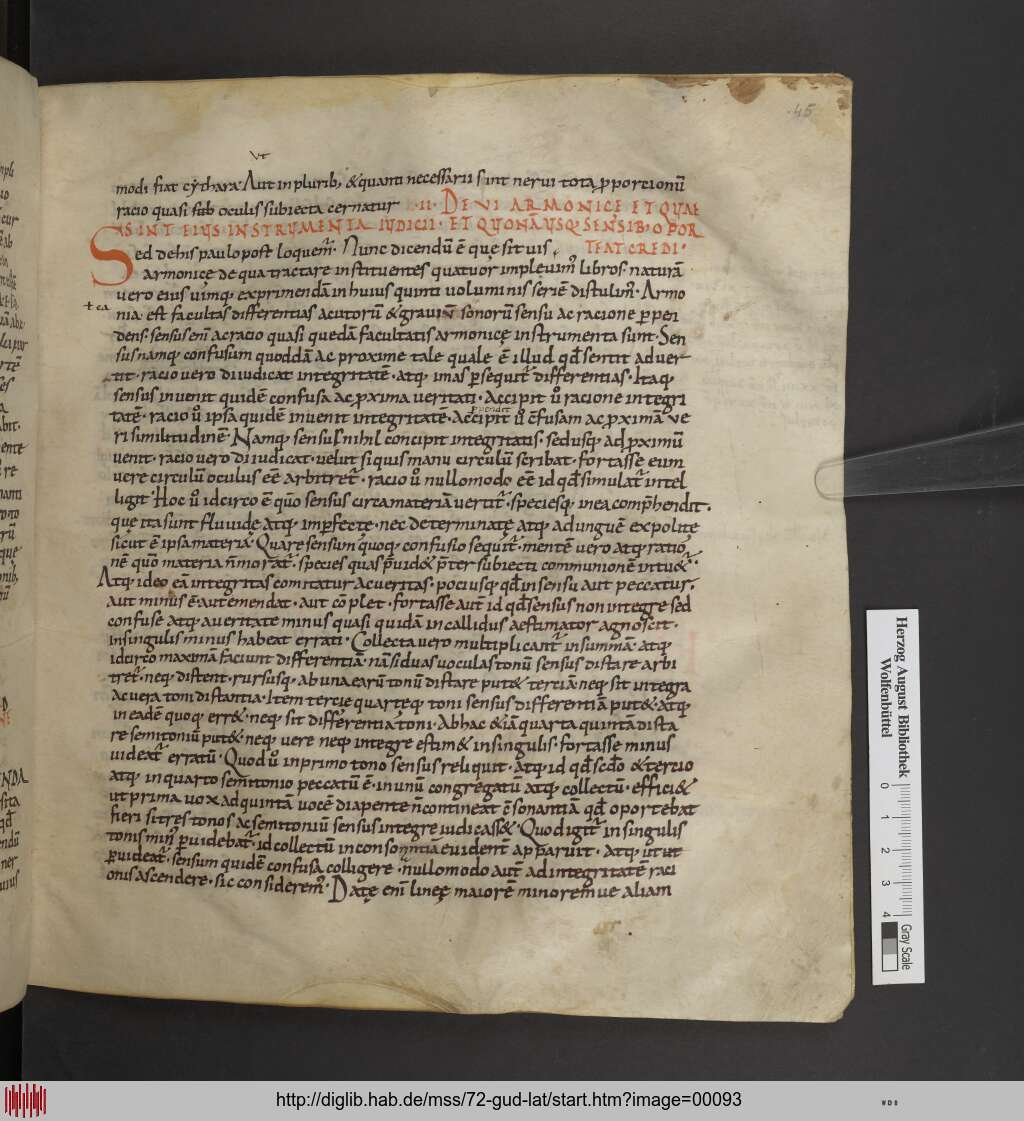 45
modi fiat cythara. Aut in plurib; & quanti necessarii sint nerui tota ꝓportionū
racio quasi sub oculis subiecta cernatur · II · DE VI ARMONICĘ ET QUAE
SINT EIUS INSTRUMENTA IUDICII · ET QUONĀ USQ; SENSIB; OPOR
Sed de his paulo post loquem̄. Nunc dicendū ē que sit uis
TEAT CREDI ·
armonicę de qua tractare instituentes quatuor impleuim; libros. naturā
uero eius uimq; exprimendā in huius quinti uoluminis seriē distulim;. Armo
nia est facultas differentias acutorū & grauiū sonorū sensu ac racione ꝑpen
dens. sensus eni ac racio quasi quedā facultatis armonicę instrumenta sunt. Sen
sus namq; confusum quoddā ac proxime tale quale ē illud qđ sentit aduer
tit. racio uero diiudicat integritatē. atq; imas ꝑsequit̄ differentias. Itaq;
sensus inuenit quidē confusa ac ꝓxima ueritati. Accipit ū racione integri
tatē. racio ū ipsa quidē inuenit integritatē. Accipit ū cfusam ac ꝓximā ue
ri similitudinē. Namq; sensus nihil concipit integritatis. sed usq; ad ꝓximū
uenit. racio uero diiudicat. uelut si quis manu circulū scribat. fortasse eum
uere circulū oculus eē arbitret̄. racio ū nullo modo eē id qđ simulat̄ intel
ligit. Hoc ū idcirco ē quō sensus circa materiā uertit̄. speciesq; in ea comp̄hendit.
que ita sunt fluuide atq; imꝑfecte. nec determinatę atq; ad unguē expolitę
sicut ē ipsa materia. Quare sensum quoq; confusio sequit̄. mentē uero atq; ratio
nē quō materia n̄ morat̄. species quas ꝑuid& p̄ter subiecti communionē intu&̄.
Atq; ideo eā integritas comitatur ac ueritas. pociusq; qđ in sensu aut peccatur.
aut minus ē. aut emendat. aut cōplet. fortasse aut̄ id qđ sensus non integre sed
confuse atq; a ueritate minus quasi quidā incallidus aestimator agnoscit.
in singulis minus habeat errati. Collecta uero multiplicant̄ in summā. atq;
idcirco maximā faciunt differentiā. nā si duas uoculas tonū sensus distare arbi
tret̄. neq; distent. rursusq; ab una earū tonū distare put& terciā. neq; sit integra
ac uera toni distantia. Item tercie quarteq; toni sensus differentiā put&. atq;
in eadē quoq; err&. neq; sit differentia toni. Ab hac & iā quarta quintā dista
re semitoniū put&. neq; uere neq; integre estim& in singulis. fortasse minus
uideat̄ erratū. Quod ū in primo tono sensus reliquit. atq; id qđ scdo & tercio
atq; in quarto semitonio peccatū ē. in unū congregatū atq; collectū. effici&
ut prima uox ad quintā uocē diapente n̄ contineat c̄sonantiā. qđ oportebat
fieri si tres tonos ac semitoniū sensus integre iudicass&. Quod igit̄ in singulis
tonis min; ꝑuidebat̄. id collectū in consonantia euident̄ apparuit. Atq; ut ut
ꝑuideat̄. sensum quidē confusa colligere. nullo modo aut̄ ad integritatē raci
onis ascendere. sic considerem;. Datę eni lineę maiorē minoremue aliam
Herzog August Bibliothek
Wolfenbüttel
0 1 2 3 4
Gray Scale
http://diglib.hab.de/mss/72-gud-lat/start.htm?image=00093